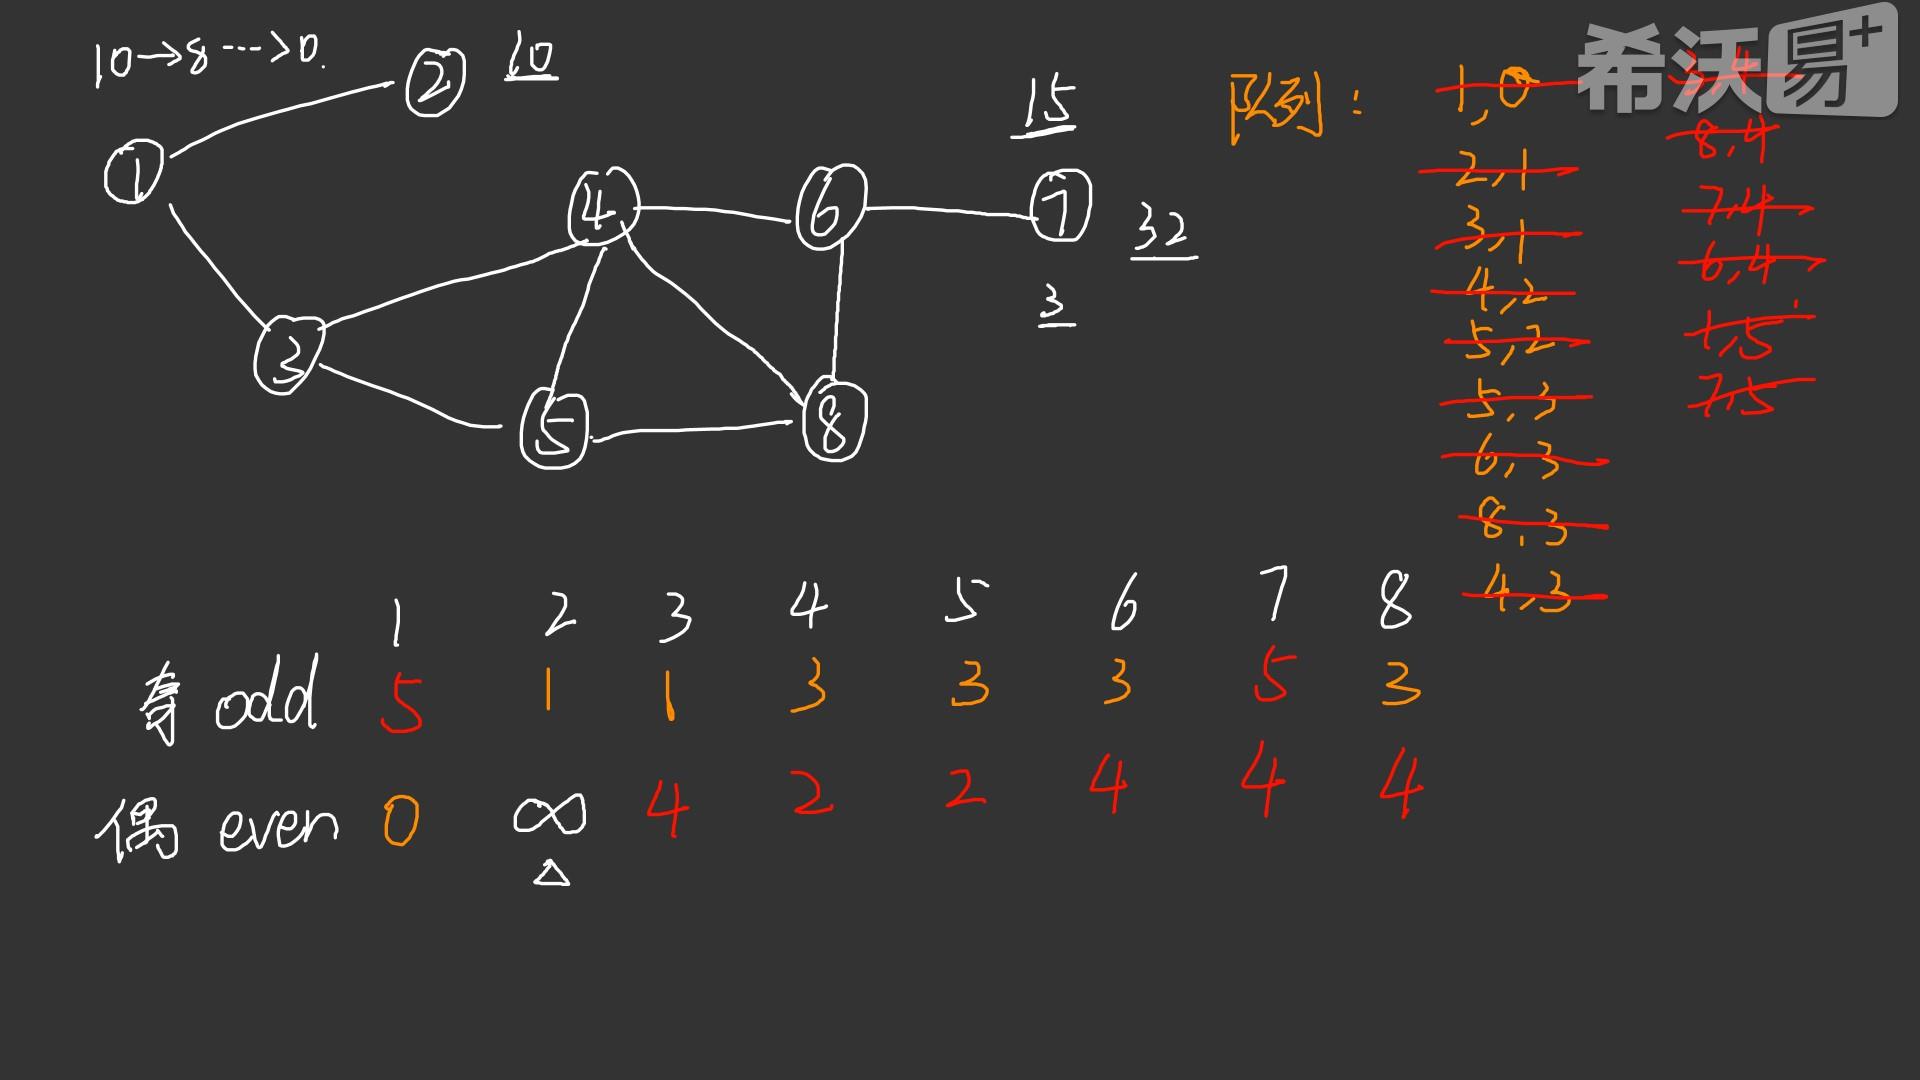 10→8···>0.
② 10
①
15
④ ⑥ ⑦
32
3
③
⑤ ⑧
队列：
1,0
2,1
3,1
4,2
5,2
5,3
6,3
8,3
4,3
希沃易+
3,4
8,4
7,4
6,4
1,5
7,5
1 2 3 4 5 6 7 8
奇 odd 5 1 1 3 3 3 5 3
偶 even 0 ∞ 4 2 2 4 4 4
△